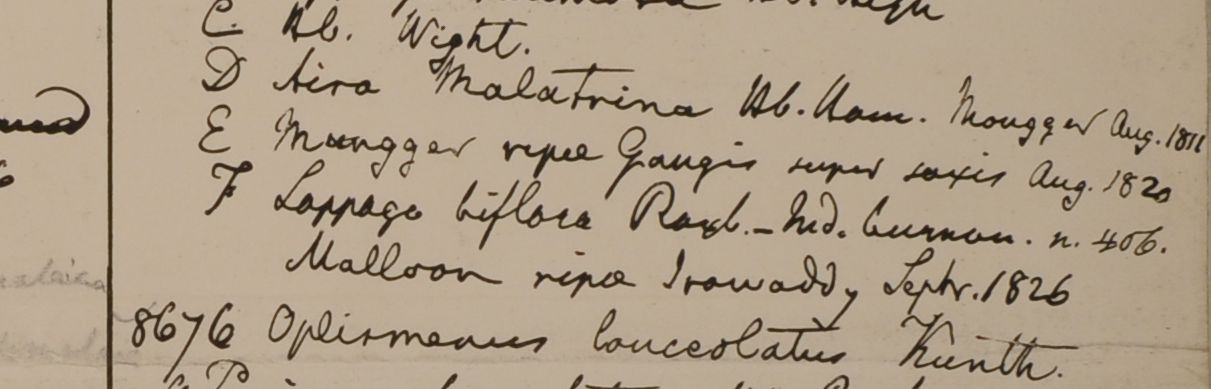 C Hb. Wight.
D Aira Malatrina Hb. Ham. Mongger Aug. 1811
E Mungger ripæ Gangis super saxis Aug. 1820
F Lappago biflora Roxb. – Ind. burman. n. 406.
Malloon ripæ Irawaddy Septr. 1826
8676 Oplismenus lanceolatus Kunth.